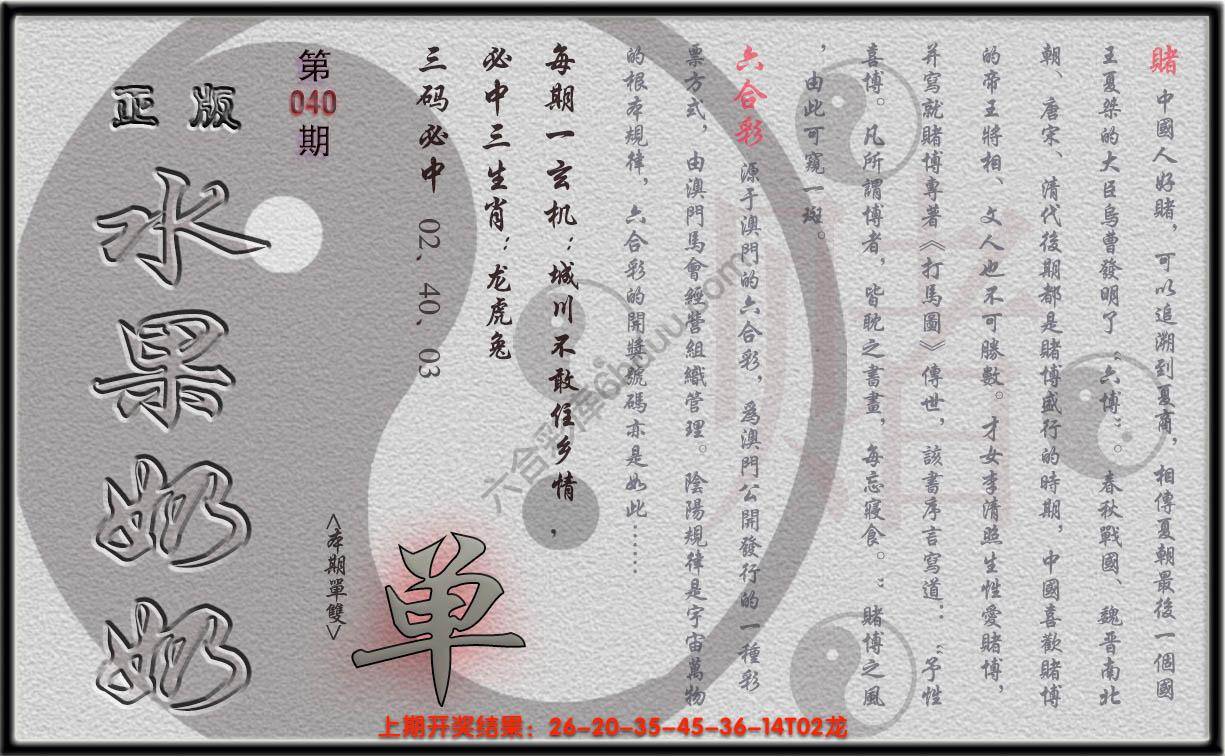 賭 中國人好賭，可以追溯到夏商，相傳夏朝最後一個國
王夏桀的大臣烏曹發明了“六博”。春秋戰國、魏晉南北
朝、唐宋、清代後期都是賭博盛行的時期，中國喜歡賭博
的帝王將相、文人也不可勝數。才女李清照生性愛賭博，
并寫就賭博專著《打馬圖》傳世，該書序言寫道：“予性
喜博。凡所謂博者，皆耽之書畫，每忘寢食。”賭博之風
，由此可窺一斑。
六合彩 源于澳門的六合彩，爲澳門公開發行的一種彩
票方式，由澳門馬會經營組織管理。陰陽規律是宇宙萬物
的根本規律，六合彩的開獎號碼亦是如此……
每期一玄机：城川不敢住乡情，
必中三生肖：龙虎兔
三码必中 02、40、03
第
040
期
正版
水果奶奶
<本期單雙>
单
賭
六合彩库6huuu.com
上期开奖结果：26-20-35-45-36-14T02龙